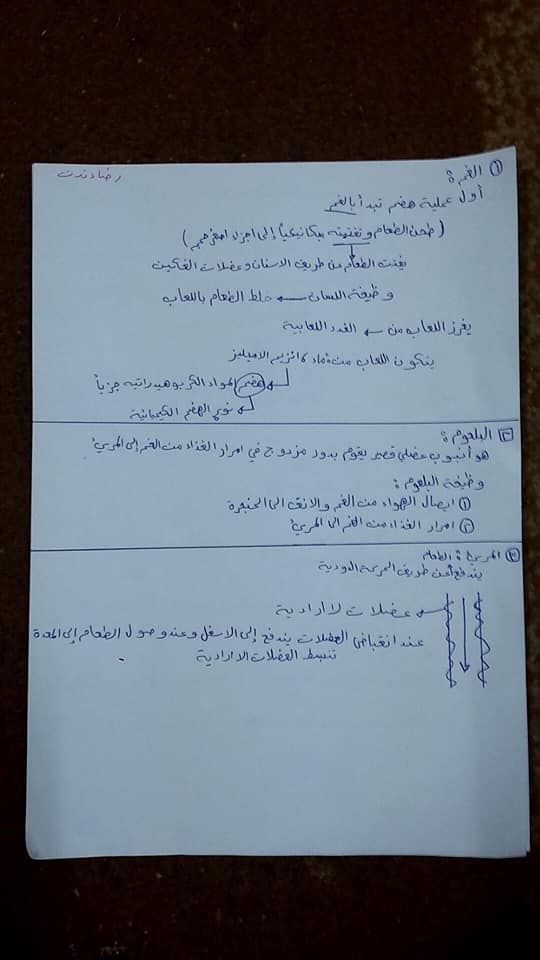 ① الفم :
أول عملية هضم تبدأ بالفم
( طحن الطعام وتفتيته ميكانيكياً إلى اجزاء اصغر حجم )
يفتت الطعام عن طريق الاسنان وعضلات الفكين
وظيفة اللسان ← خلط الطعام باللعاب
يفرز اللعاب من ← الغدد اللعابية
يتكون اللعاب من ماء ، انزيم الاميليز
هضم المواد الكربوهيدراتيه جزياً
نوع الهضم الكيميائية
② البلعوم :
هو أنبوب عضلي قصير يقوم بدور مزدوج في امرار الغذاء من الفم إلى المريء
وظيفة البلعوم :
① ايصال الهواء من الفم والانف الى الحنجرة
② امرار الغذاء من الفم الى المريء
③ المريء : الطعام
يندفع عن طريق الحركة الدودية
← عضلات لا ارادية
عند انقباض العضلات يندفع إلى الاسفل وعند وصول الطعام إلى المعدة
تنبسط العضلات الا ارادية